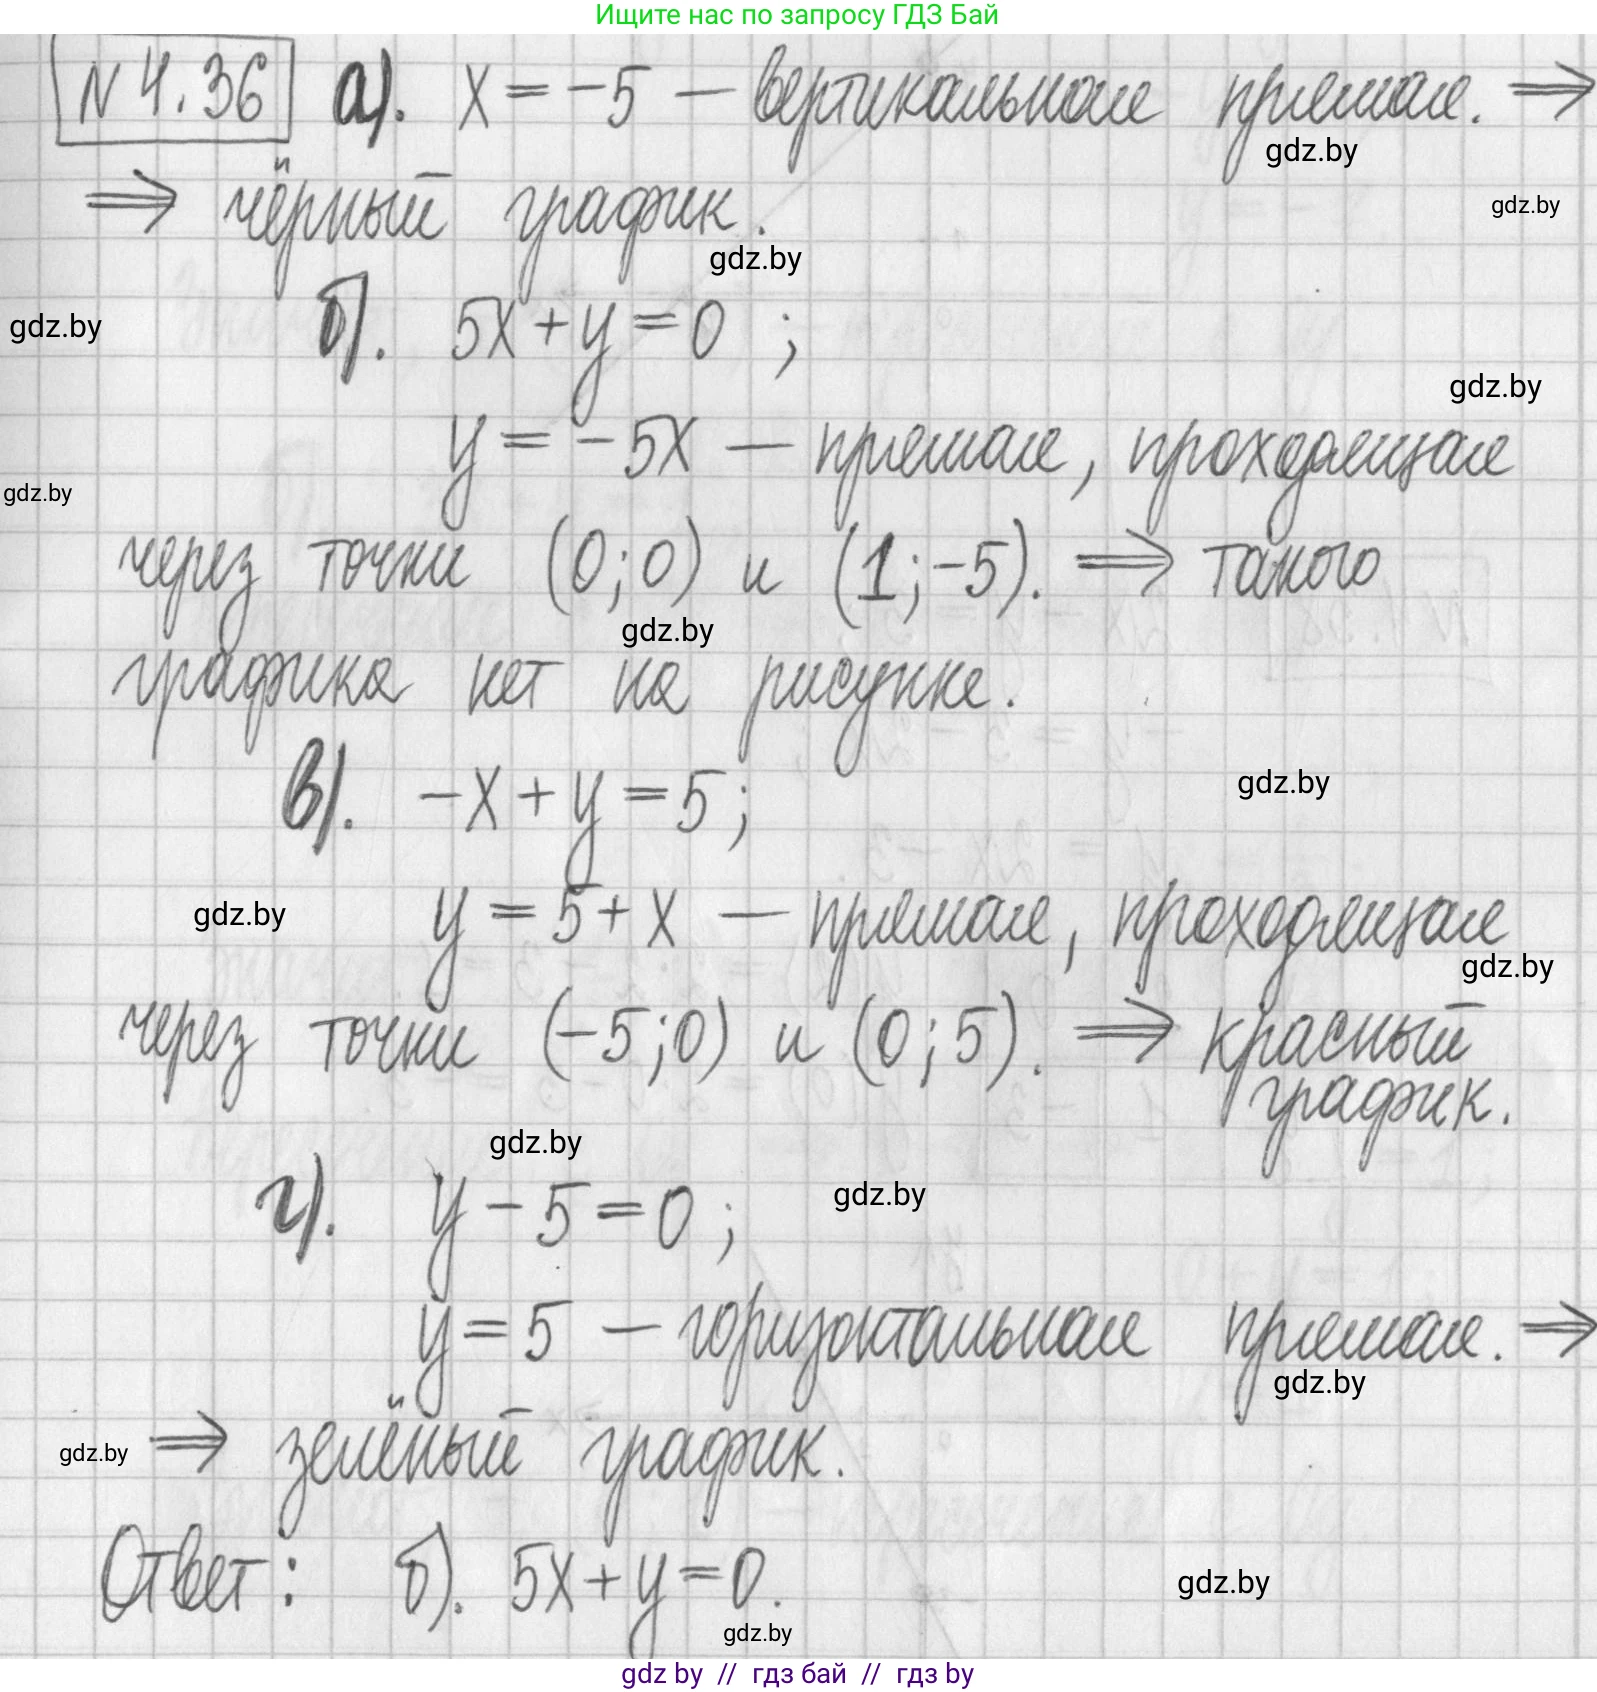 Ищите нас по запросу ГДЗ Бай
N 4.36 а). x = -5 — вертикальная прямая. ⇒
gdz.by
⇒ чёрный график.
gdz.by
gdz.by
б). 5x + y = 0 ;
gdz.by
gdz.by
y = -5x — прямая, проходящая
gdz.by
через точки (0;0) и (1;-5). ⇒ такого
gdz.by
графика нет на рисунке.
в). -x + y = 5;
gdz.by
y = 5 + x — прямая, проходящая
gdz.by
gdz.by
через точки (-5;0) и (0;5). ⇒ красный
график.
gdz.by
г). y - 5 = 0 ;
gdz.by
y = 5 — горизонтальная прямая. ⇒
gdz.by
⇒ зелёный график.
gdz.by
Ответ: б). 5x + y = 0.
gdz.by
gdz.by
gdz by // гдз бай // гдз by